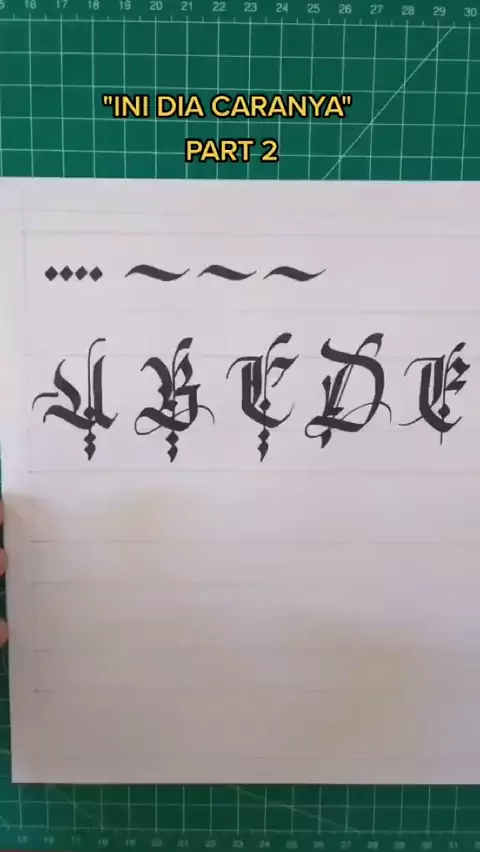 16 17 18 19 20 21 22 23 24 25 26 27 28 29 30
"INI DIA CARANYA"
PART 2
A B C D E